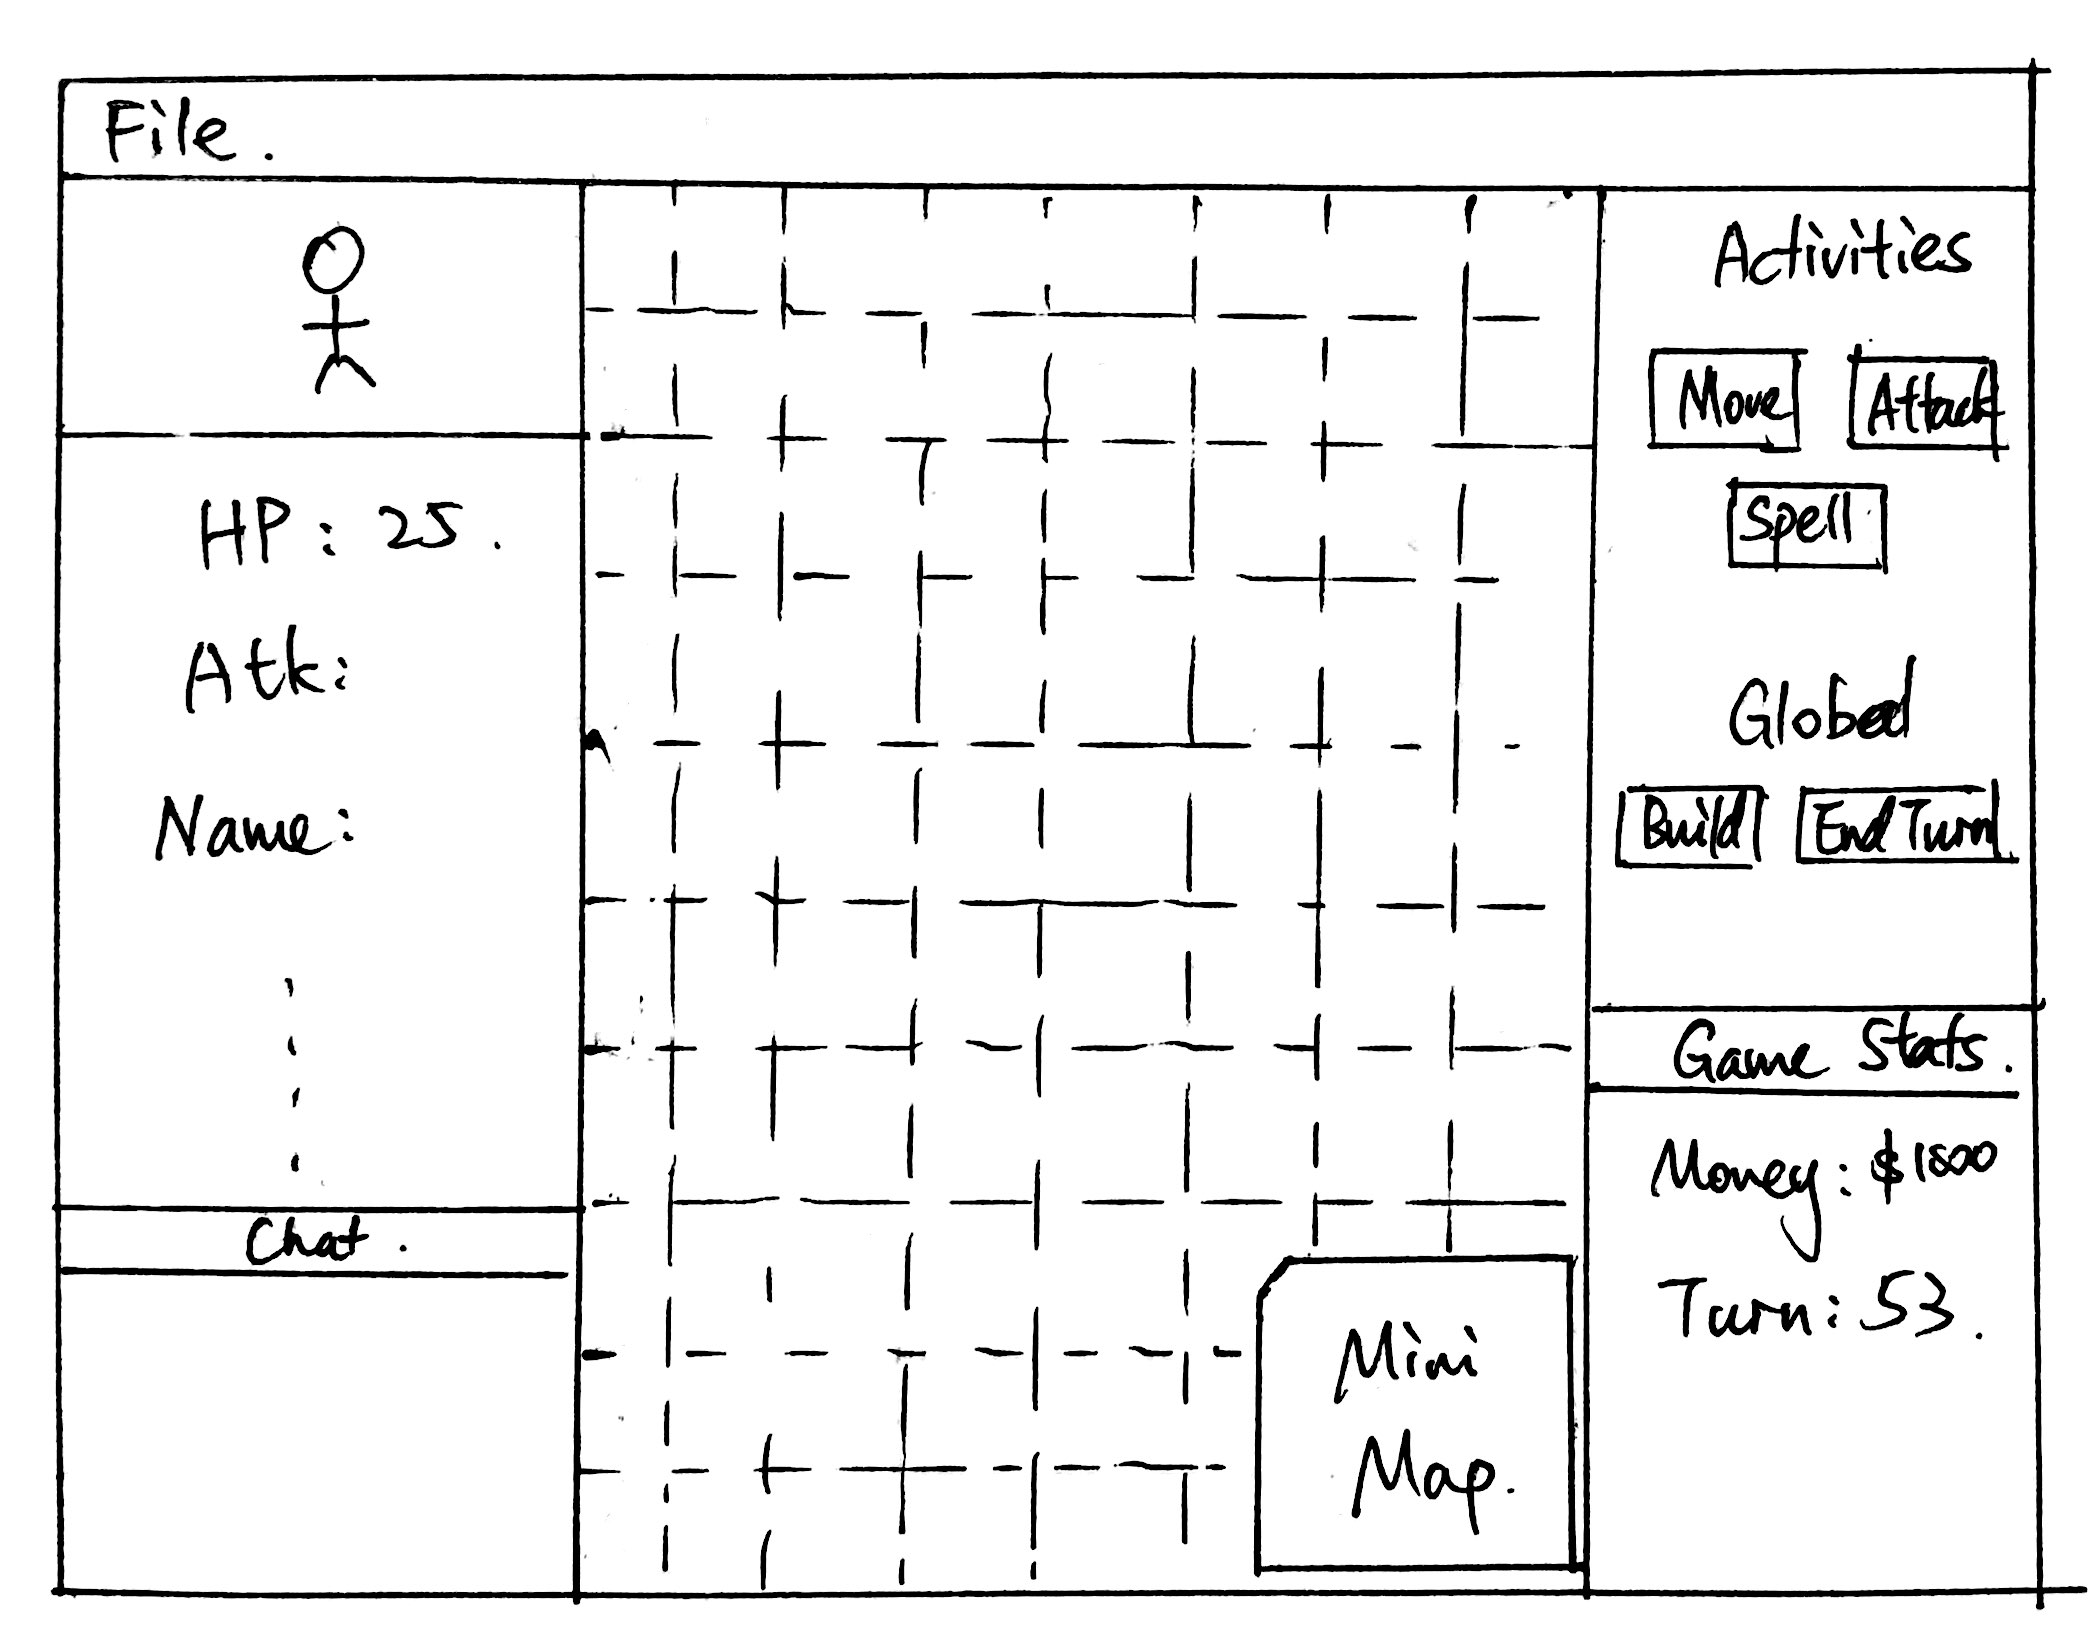 File.
HP: 25.
Atk:
Name:
Chat.
Mini
Map.
Activities
Move Attack
Spell
Global
Build End Turn
Game Stats.
Money: $1800
Turn: 53.